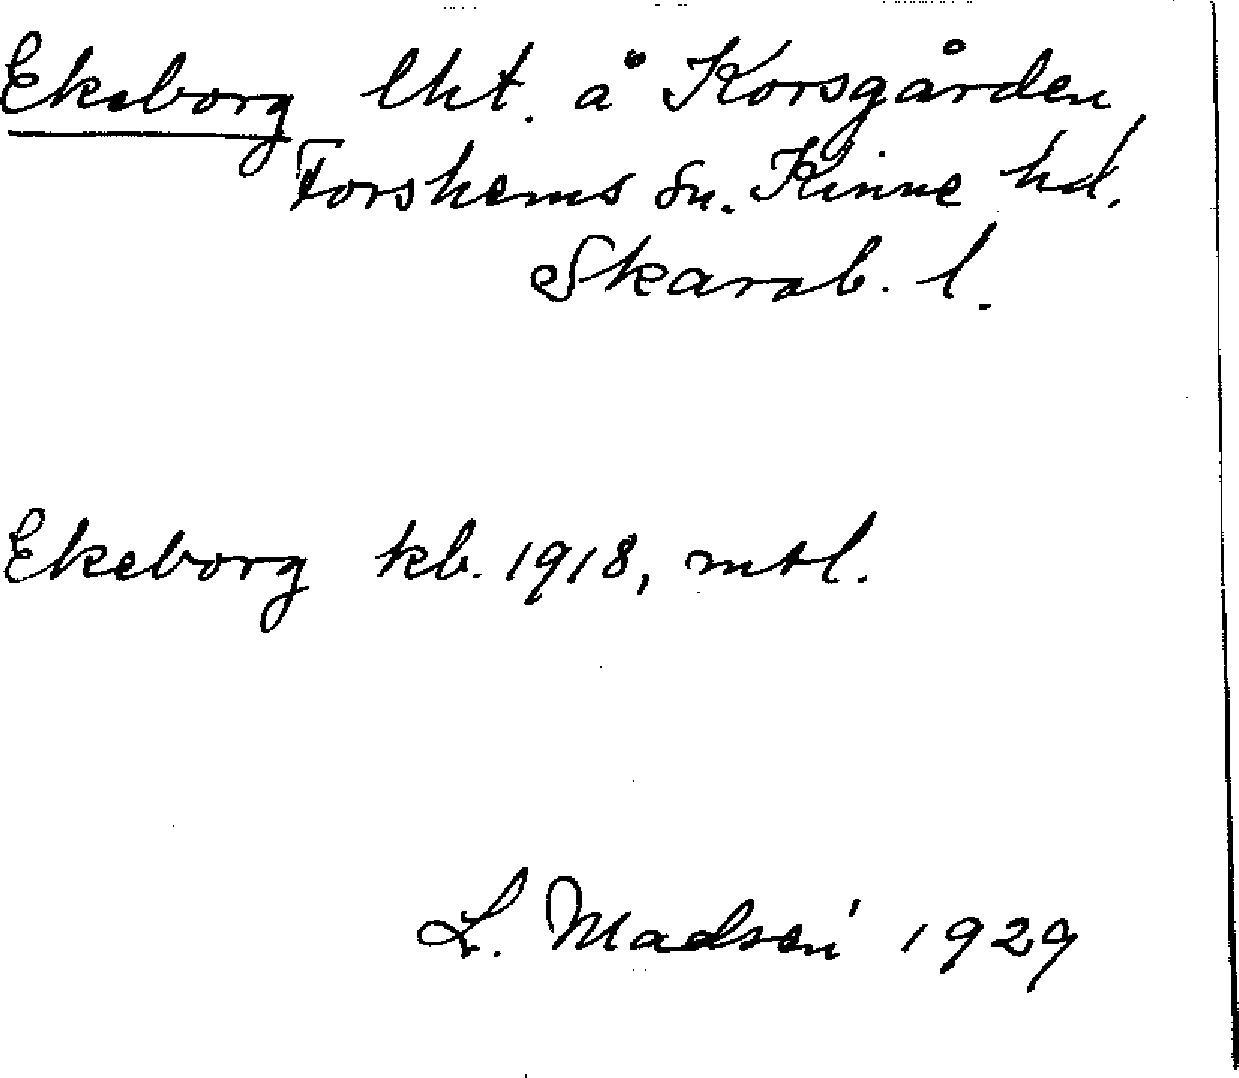 Ekeborg lht. å Korsgården
Forshems sn. Kinne hd.
Skarab. l.
Ekeborg kb. 1918, mtl.
L. Madsén 1929